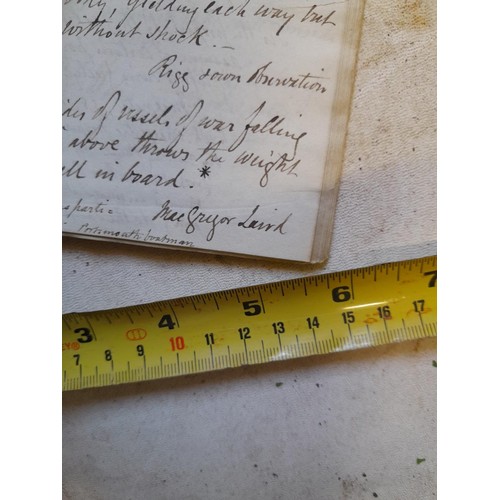 yielding each way but
without shock. —
Rigg down observation
of vessels of war falling
above throws the weight
ll in board. *
MacGregor Laird
Portsmouth boatman
3 4 5 6 7
7 8 9 10 11 12 13 14 15 16 17